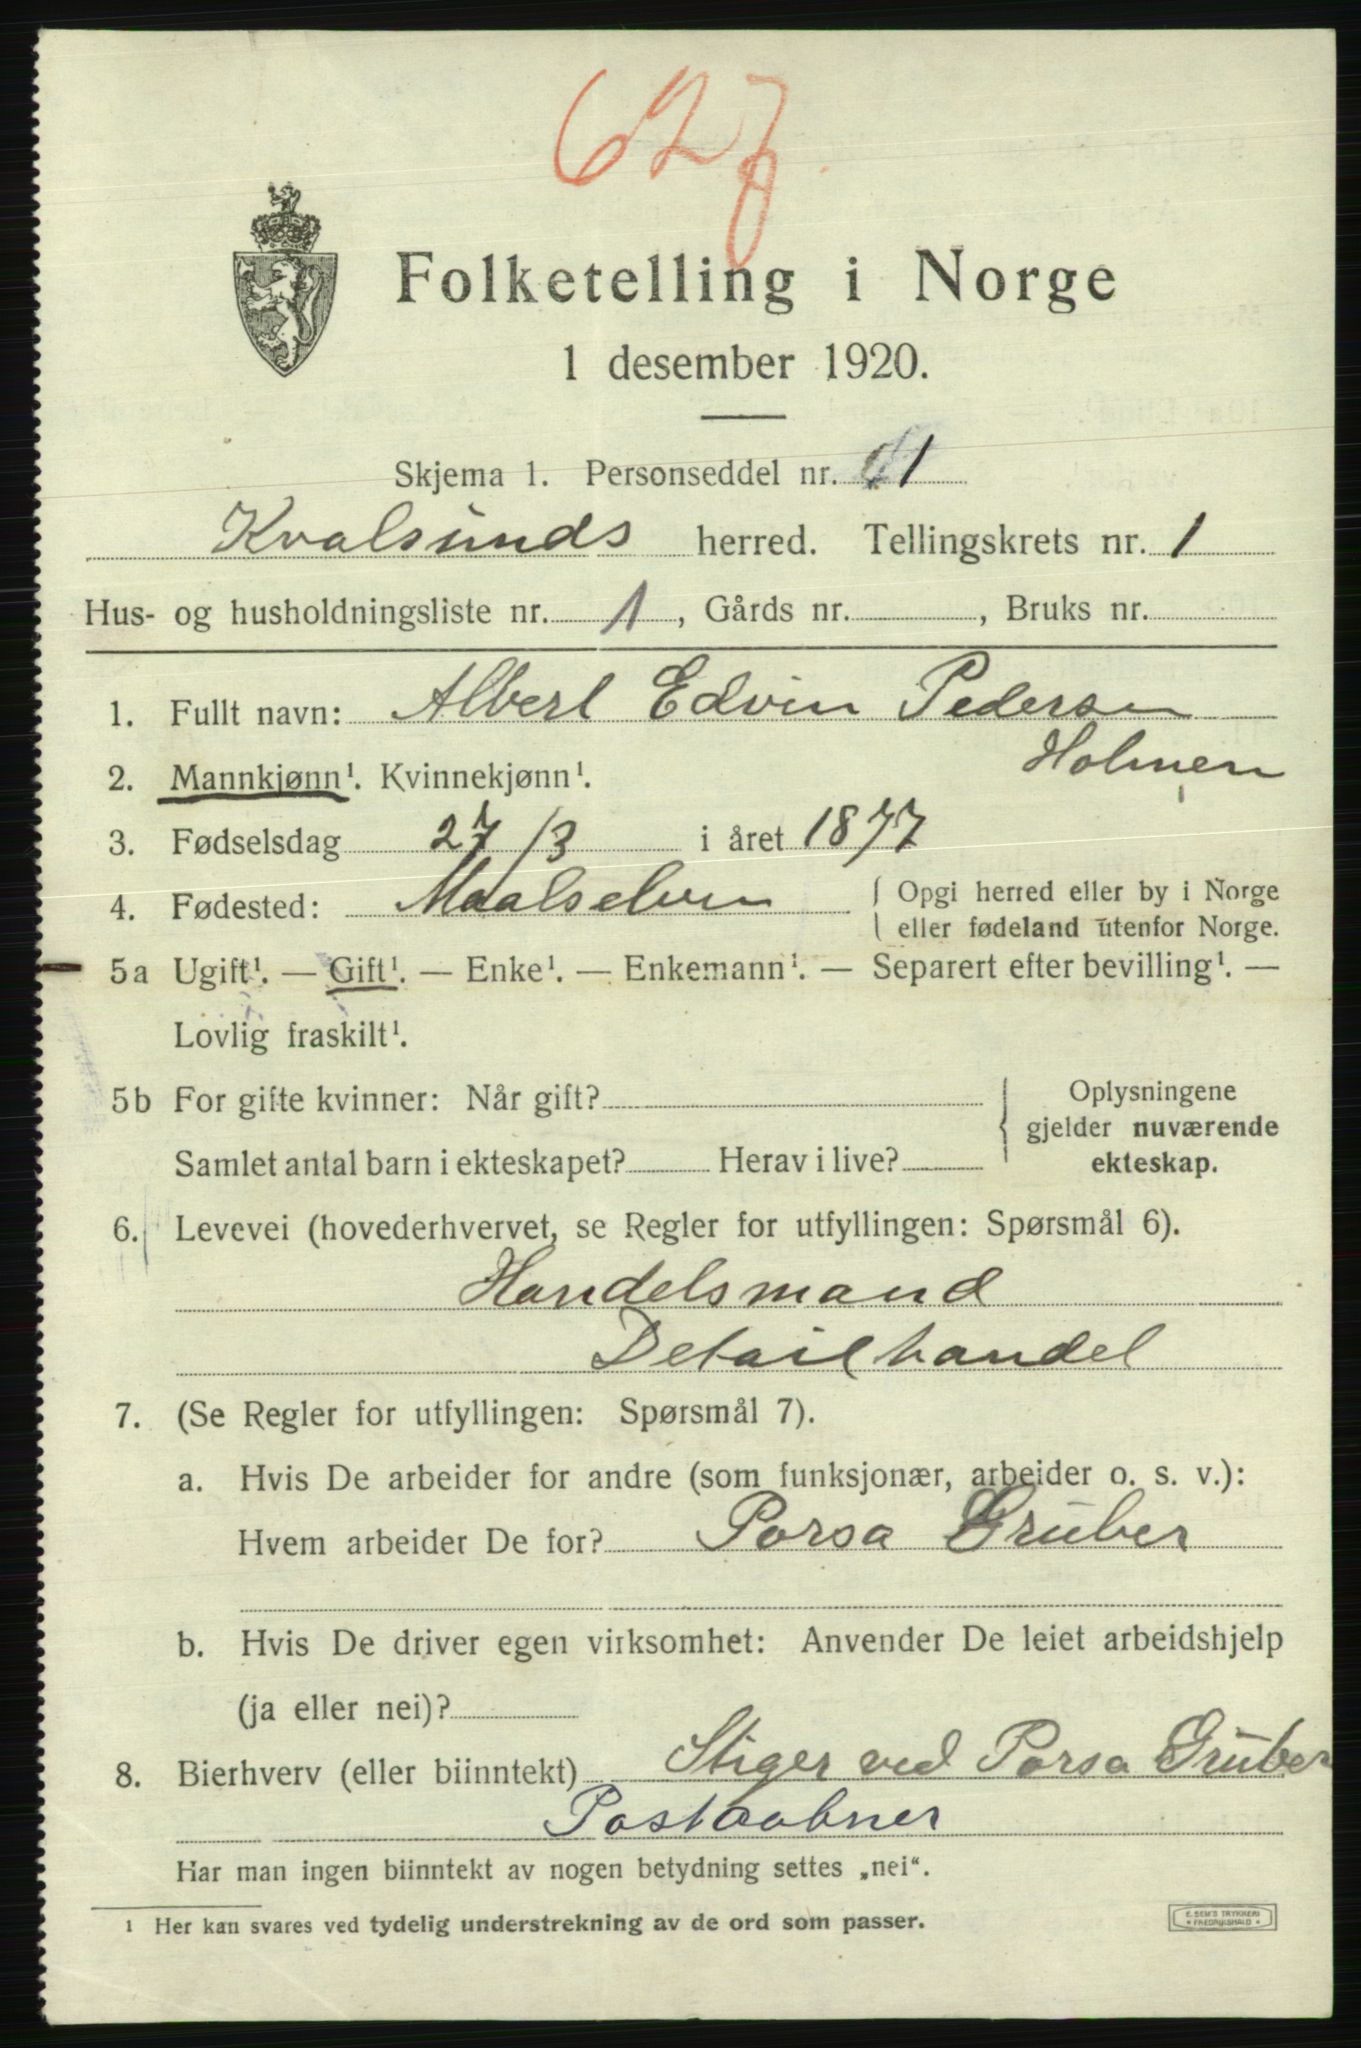 62
Folketelling i Norge
1 desember 1920.
Skjema 1. Personseddel nr. 1
Kvalsunds herred. Tellingskrets nr. 1
Hus- og husholdningsliste nr. 1, Gårds nr. , Bruks nr.
1. Fullt navn: Albert Edvin Pedersen
Holmen
2. Mannkjønn¹. Kvinnekjønn¹.
3. Fødselsdag 27/3 i året 1877
4. Fødested: Maalselven { Opgi herred eller by i Norge
eller fødeland utenfor Norge.
5a Ugift¹. — Gift¹. — Enke¹. — Enkemann¹. — Separert efter bevilling¹. —
Lovlig fraskilt¹.
5b For gifte kvinner: Når gift? { Oplysningene
gjelder nuværende
Samlet antal barn i ekteskapet? Herav i live? ekteskap.
6. Levevei (hovederhvervet, se Regler for utfyllingen: Spørsmål 6).
Handelsmand
Detailhandel
7. (Se Regler for utfyllingen: Spørsmål 7).
a. Hvis De arbeider for andre (som funksjonær, arbeider o. s. v.):
Hvem arbeider De for? Porsa Gruber
b. Hvis De driver egen virksomhet: Anvender De leiet arbeidshjelp
(ja eller nei)?
8. Bierhverv (eller biinntekt) Stiger ved Porsa Gruber
Postaabner
Har man ingen biinntekt av nogen betydning settes „nei“.
¹ Her kan svares ved tydelig understrekning av de ord som passer.
E. SEM'S TRYKKERI
* FREDRIKSHALD *